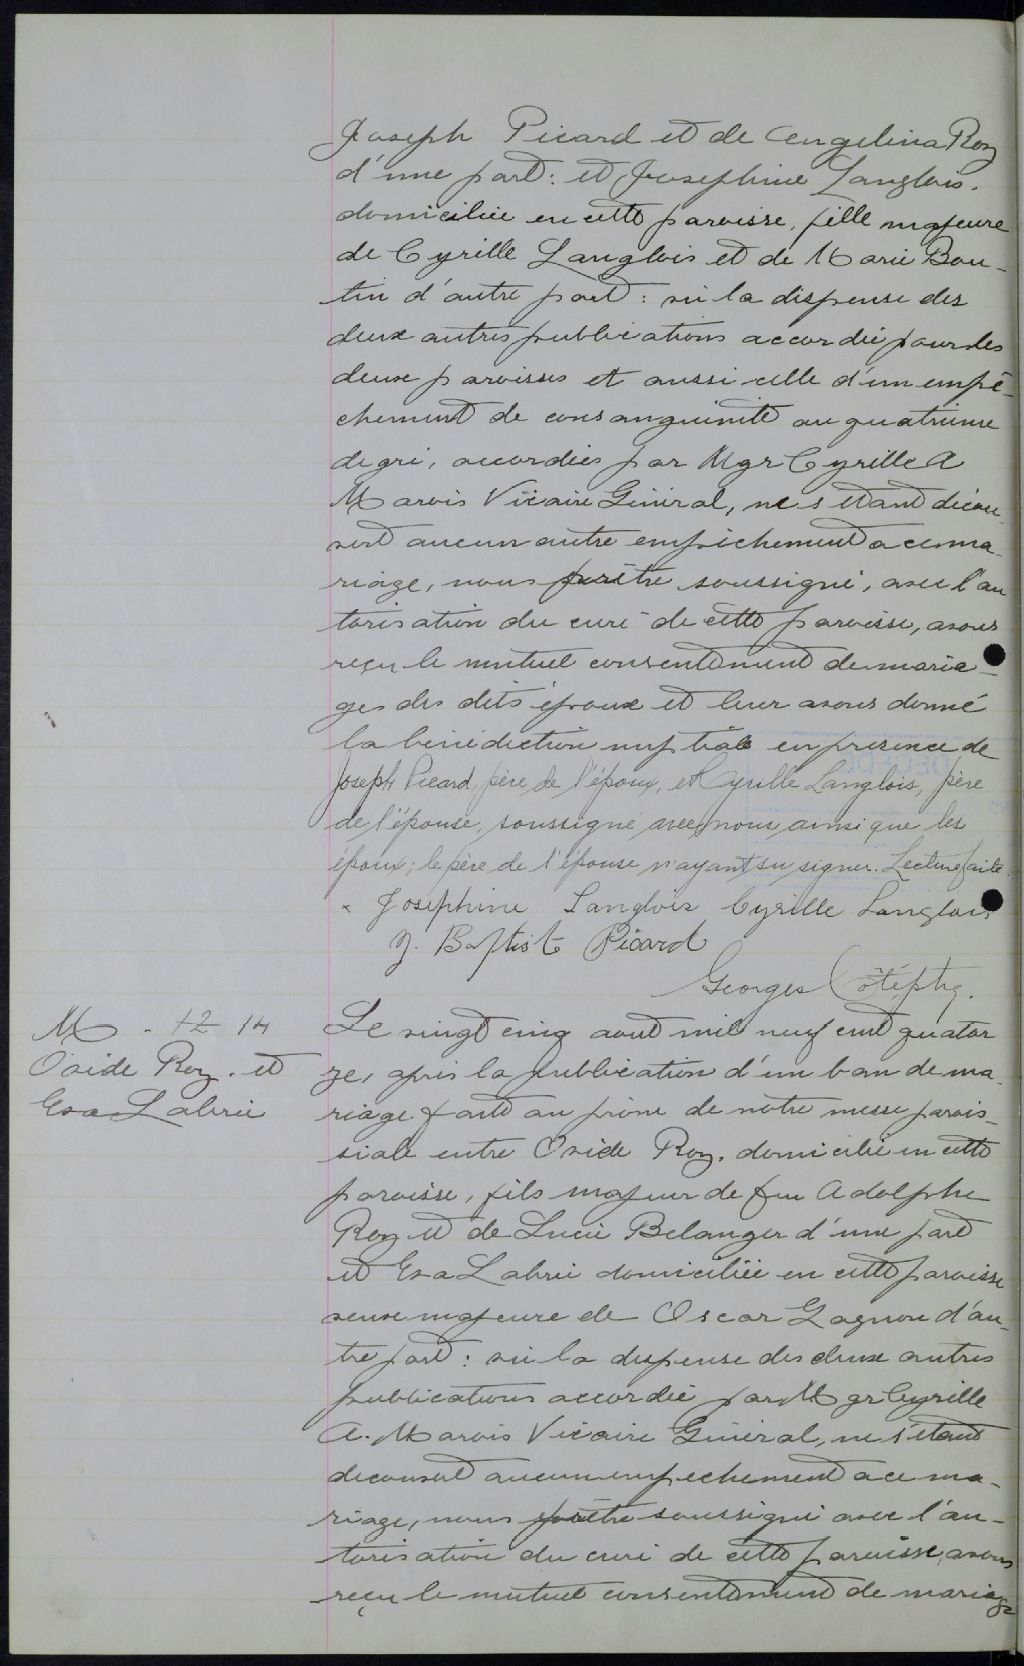 Joseph Picard et de Angelina Roy
d'une part: et Josephine Langlois.
domiciliée en cette paroisse, fille majeure
de Cyrille Langlois et de Marie Bou-
tin d'autre part: vu la dispense des
deux autres publications accordée pour les
deux paroisses et aussi celle d'un empê-
chement de consanguinité au quatrieme
degré, accordées par Mgr Cyrille A
Marois Vicaire Général, ne s'etant décou-
vert aucun autre empêchement a ce ma-
riage, nous prêtre soussigné, avec l'au
torisation du curé de cette paroisse, avons
reçu le mutuel consentement de maria-
ges des dits époux et leur avons donné
la bénédiction nuptiale en présence de
Joseph Picard, père de l'époux, et Cyrille Langlois, père
de l'épouse, soussigné avec nous ainsi que les
époux; le père de l'épouse n'ayant su signer. Lecture faite.
x Josephine Langlois Cyrille Langlois
J. Baptist Picard
Georges Côté, ptre.
M - 12 14
Ovide Roy. et
Eva Labrie
Le vingt cinq aout mil neuf cent quator
ze, après la publication d'un ban de ma-
riage faite au prône de notre messe parois-
siale entre Ovide Roy. domicilié en cette
paroisse, fils majeur de feu Adolphe
Roy et de Lucie Belanger d'une part
et Eva Labrie domiciliée en cette paroisse
veuve majeure de Oscar Gagnon d'au-
tre part: vu la dispense des deux autres
publications accordée par Mgr Cyrille
A. Marois Vicaire Général, ne s'étant
decouvert aucun empechement a ce ma-
riage, nous prêtre soussigné avec l'au-
torisation du curé de cette paroisse, avons
reçu le mutuel consentement de mariage